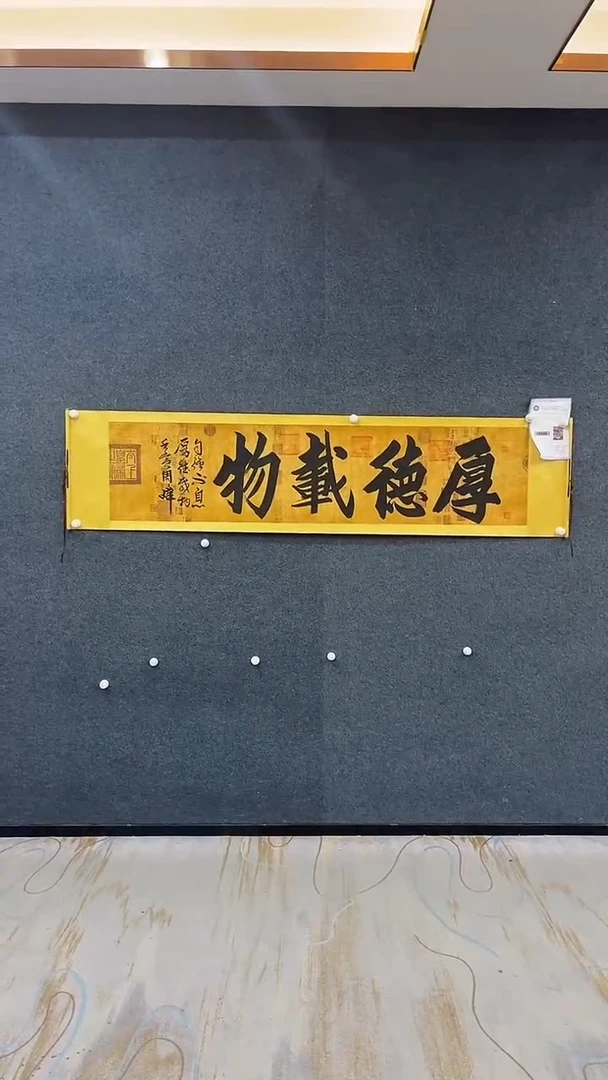 厚德載物
自強不息
厚德載物